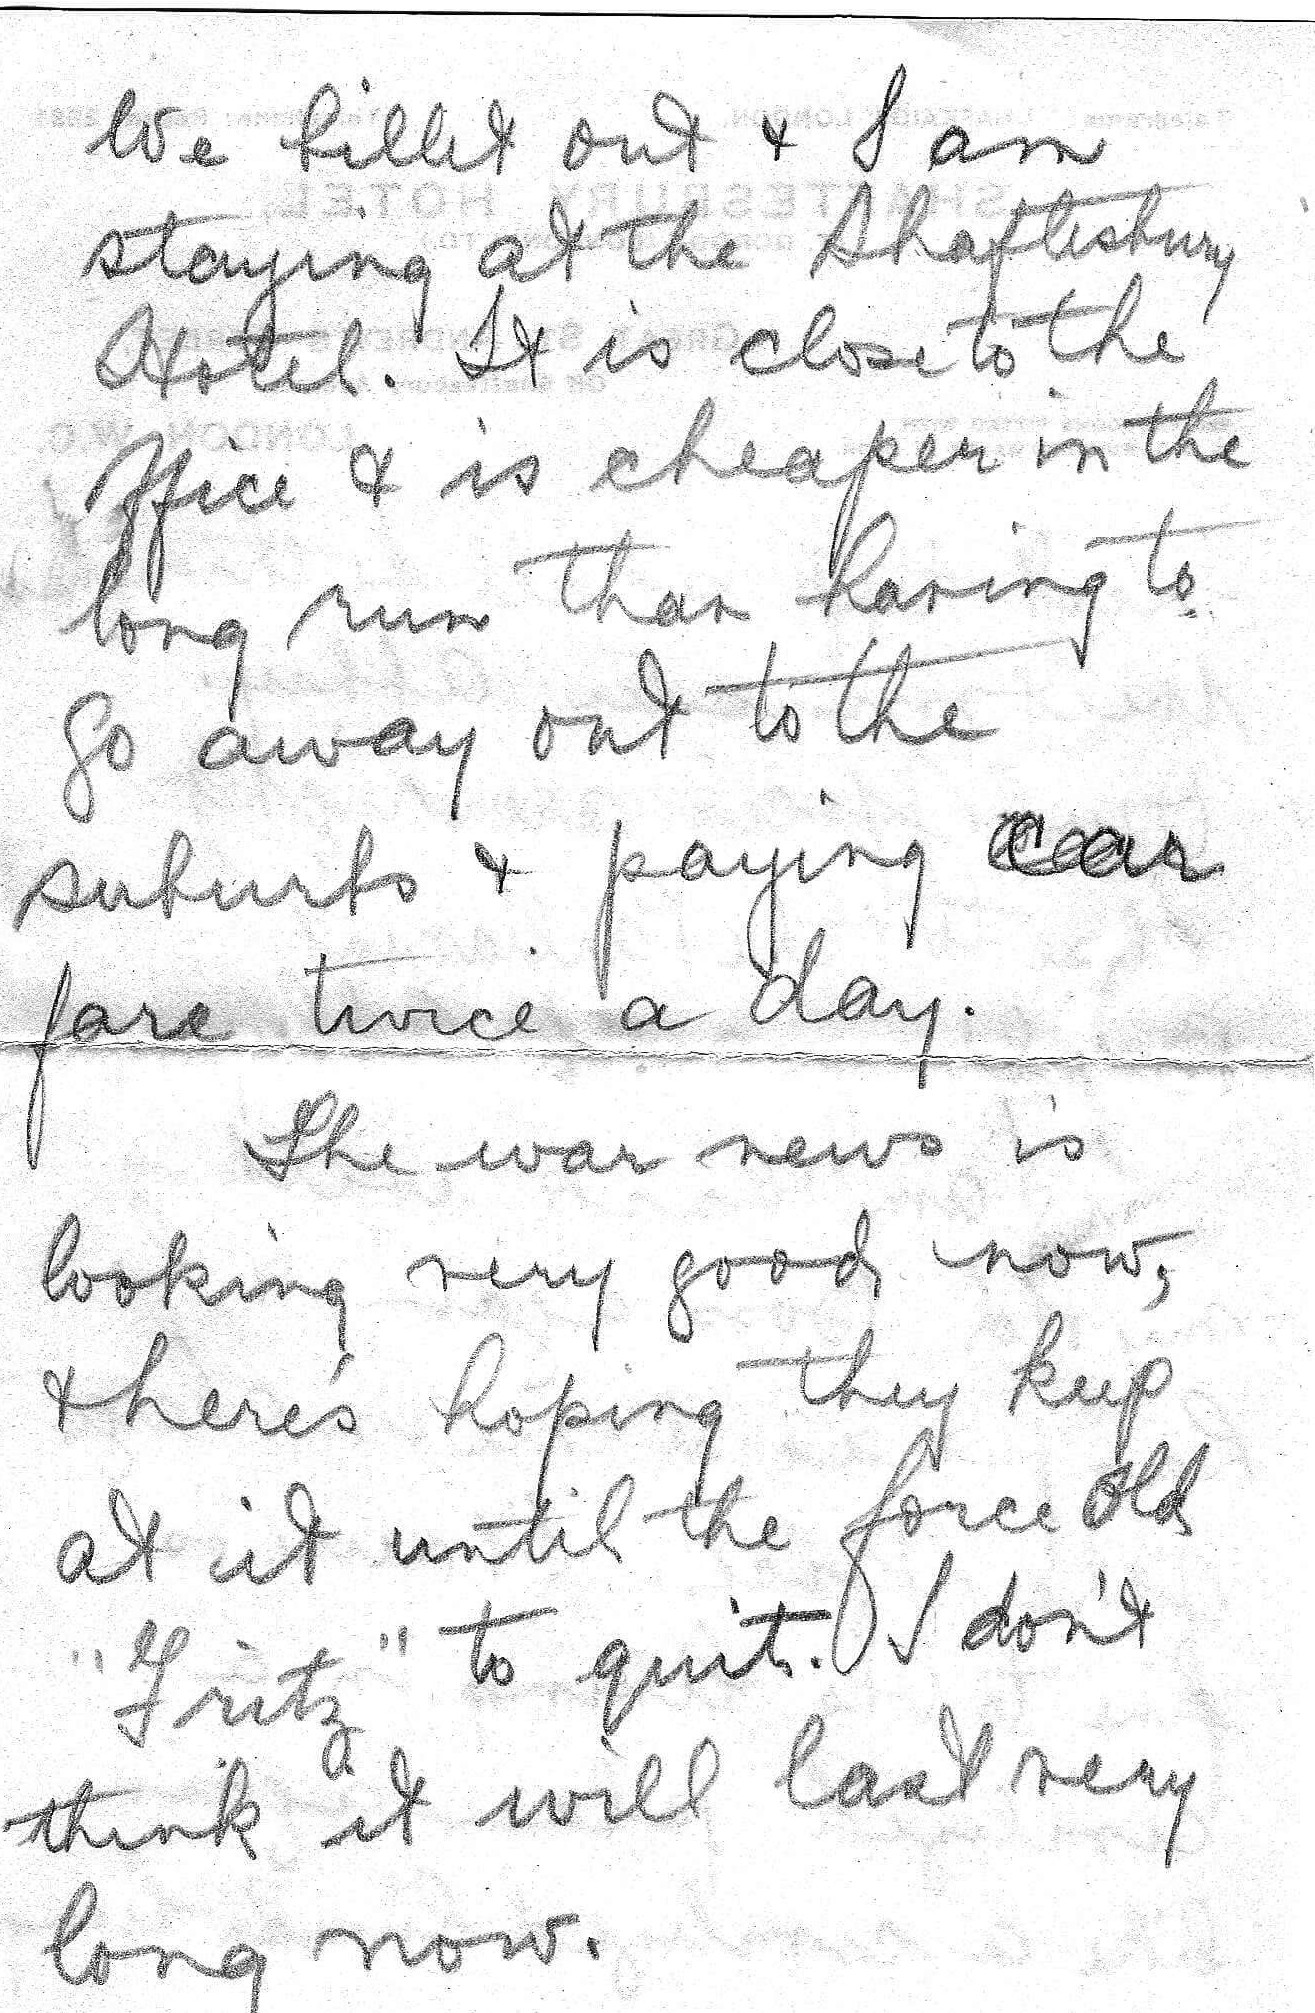 We billet out & I am
staying at the Shaftesbury
Hotel. It is close to the
office & is cheaper in the
long run than having to
go away out to the
suburbs & paying car
fare twice a day.
The war news is
looking very good now,
& here's hoping they keep
at it until the force old
"Fritz" to quit. I don't
think it will last very
long now.